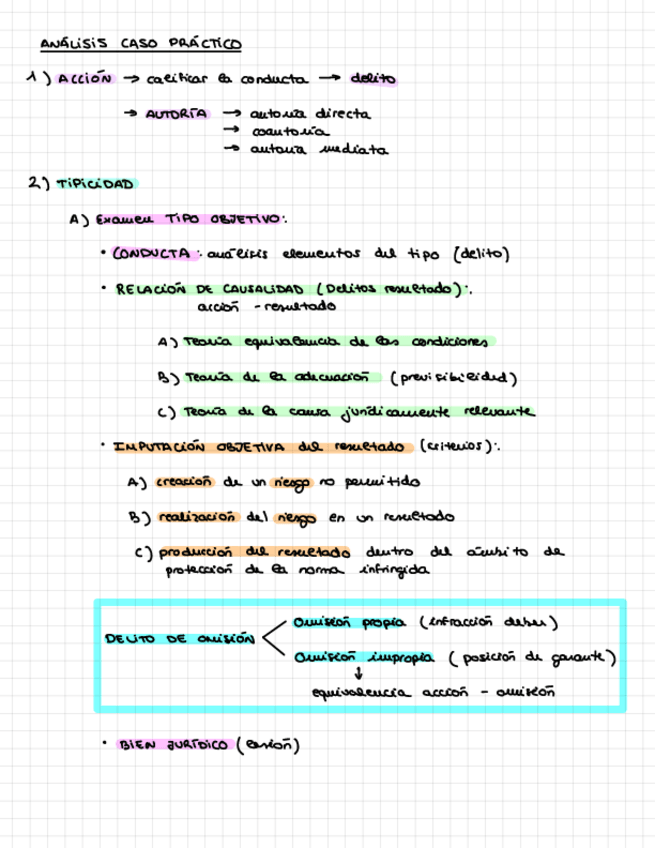 ANÁLISIS CASO PRÁCTICO
1) ACCIÓN → calificar la conducta → delito
→ AUTORÍA → autoría directa
→ coautoría
→ autoría mediata
2) TIPICIDAD
A) Examen TIPO OBJETIVO:
• CONDUCTA: análisis elementos del tipo (delito)
• RELACIÓN DE CAUSALIDAD (Delitos resultado):
acción - resultado
A) Teoría equivalencia de las condiciones
B) Teoría de la adecuación (previsibilidad)
C) Teoría de la causa jurídicamente relevante
• IMPUTACIÓN OBJETIVA del resultado (criterios):
A) creación de un riesgo no permitido
B) realización del riesgo en un resultado
C) producción del resultado dentro del ámbito de
protección de la norma infringida
DELITO DE OMISIÓN
Omisión propia (infracción deber)
Omisión impropia (posición de garante)
↓
equivalencia acción - omisión
• BIEN JURÍDICO (lesión)